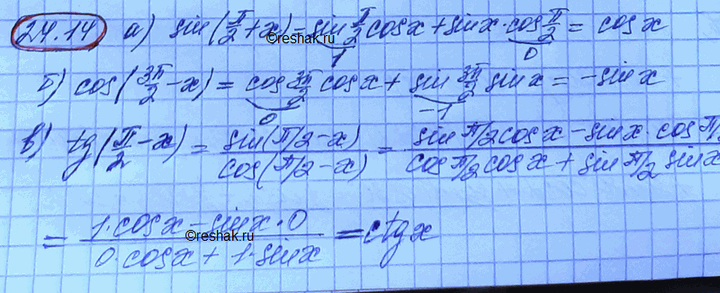 24.14 а) sin(π/2+x)=sin π/2 cosx+sinx·cos π/2=cosx
1 0
б) cos(3π/2-x)=cos 3π/2 cosx+sin 3π/2 sinx=-sinx
0 -1
в) tg(π/2-x)=sin(π/2-x)/cos(π/2-x)=sinπ/2cosx-sinx·cosπ/2/cosπ/2cosx+sinπ/2sinx
=1·cosx-sinx·0/0·cosx+1·sinx=ctgx
©reshak.ru
©reshak.ru